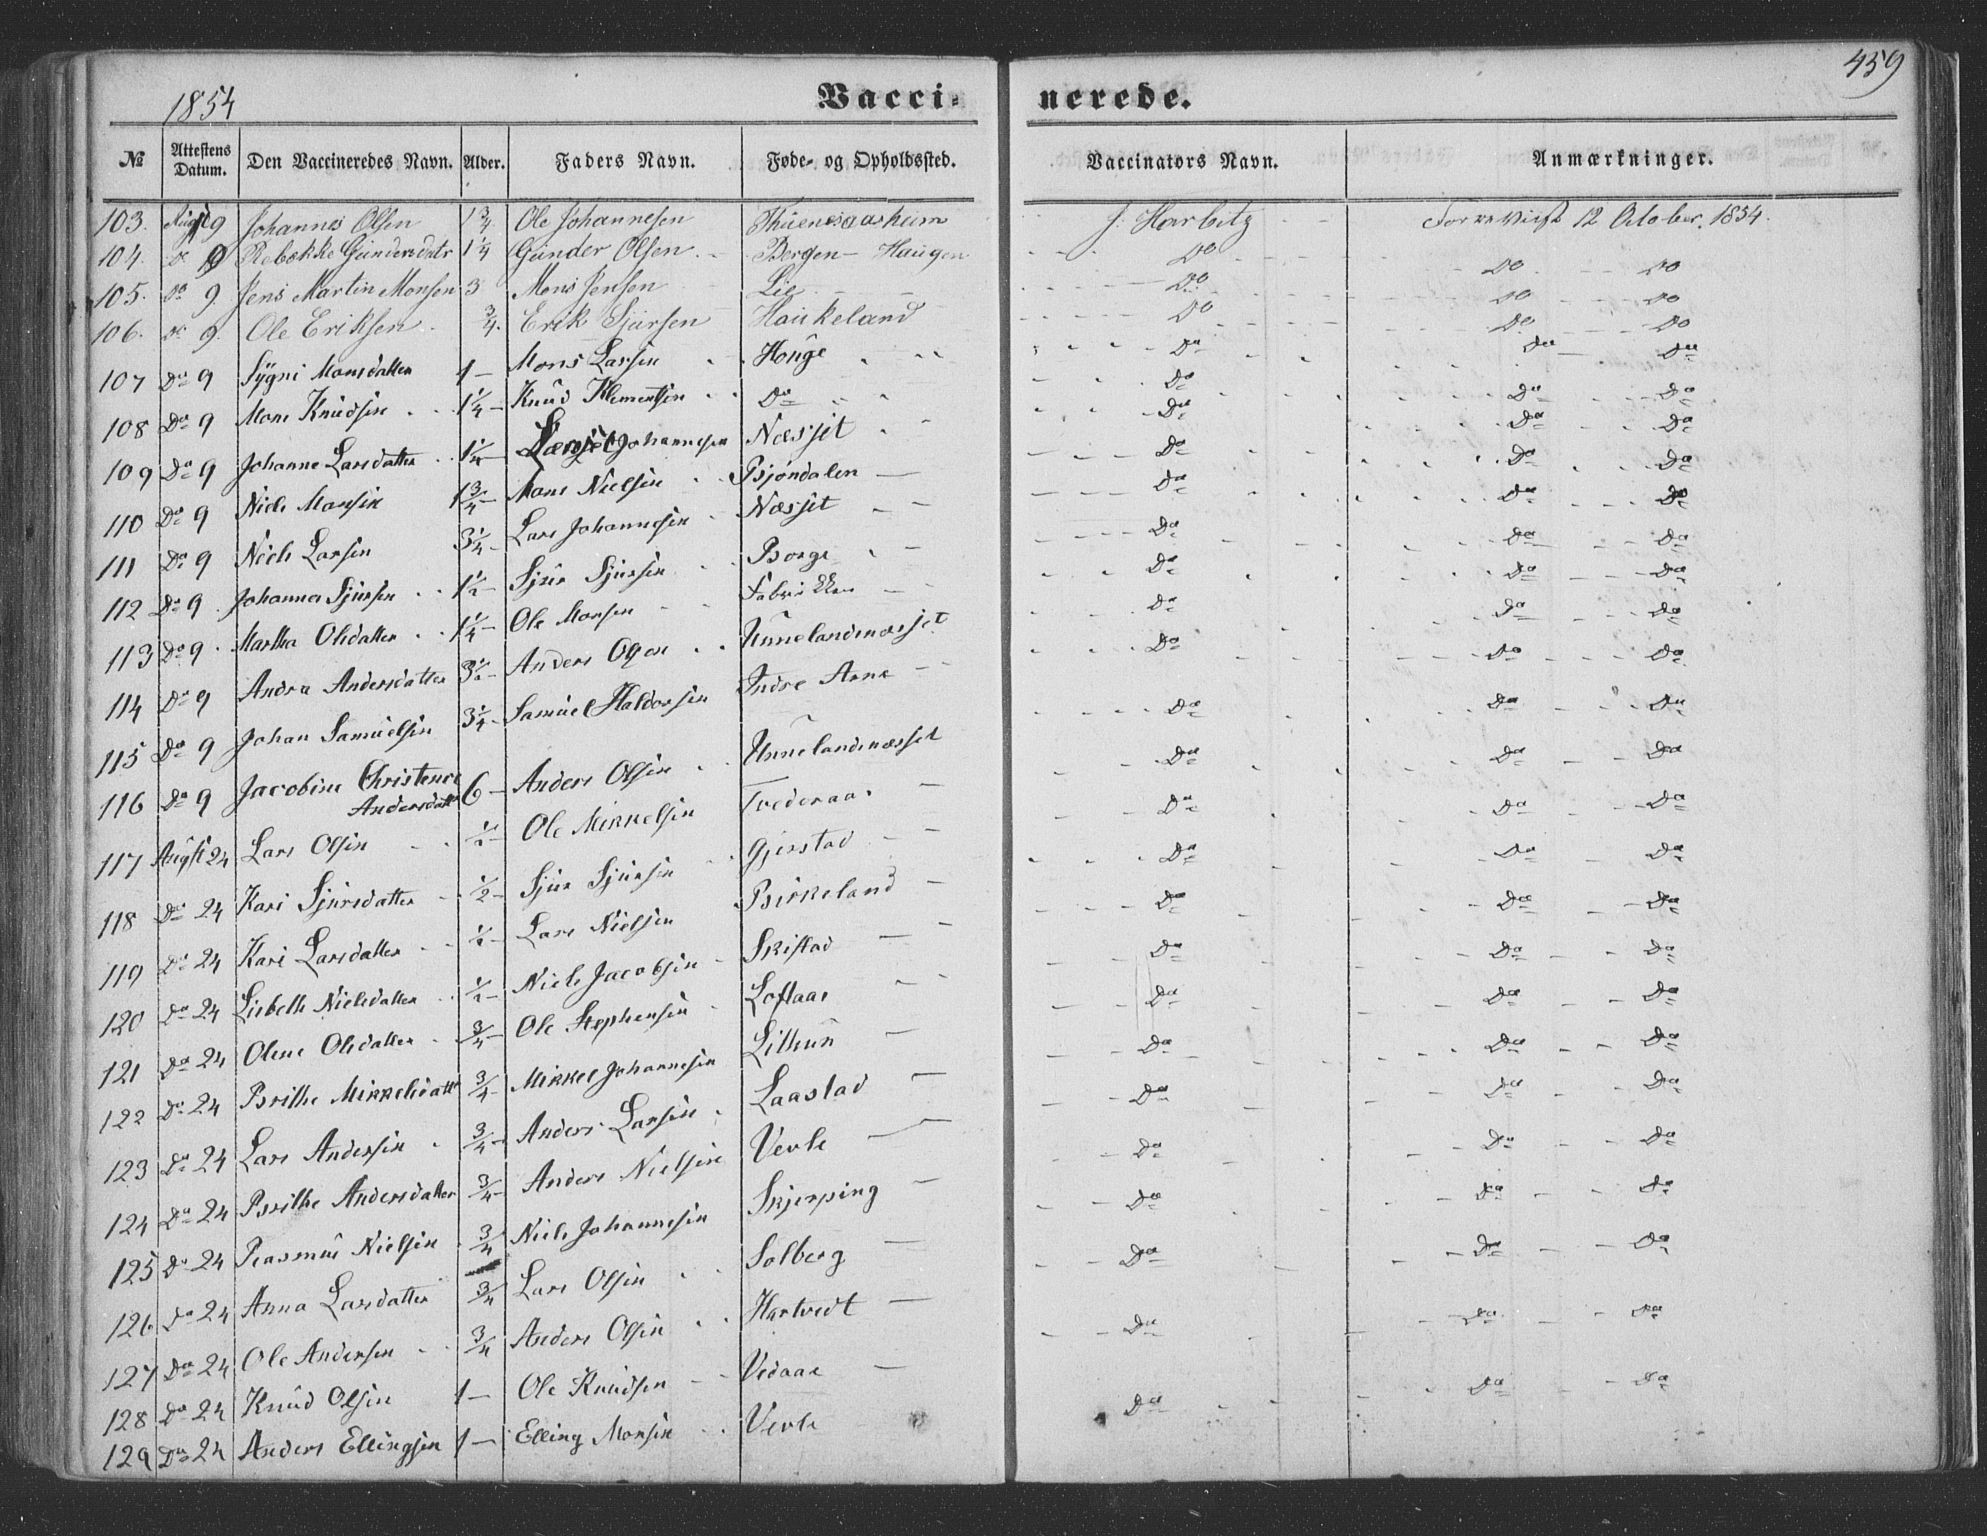 459
1854 Vaccinerede.
№ Attestens Datum. Den Vaccineredes Navn. Alder. Faders Navn. Føde- og Opholdssted. Vaccinators Navn. Anmærkninger.
103. Augst 9 Johannes Olsen 1 3/4 Ole Johannesen J. Harbitz 12 October 1854.
104. do 9 Rebekke Gundersdatr 1 1/4 Gunder Olsen Bergen - Haugen do do do
105. do 9. Jens Martin Monsen 3 Mons Jensen Lie do do do
106. do 9. Ole Eriksen 3/4. Erik Sjursen Haukeland do do do
107 Do 9 Sygni Monsdatter 1 — Mons Larsen Houge Do Do Do
108 Do 9 Mons Knudsen 1 1/4 — Knud Klementsen Do Do Do Do
109 Do 9 Johanne Larsdatter 1 1/4 — Johannesen Næsset Do Do Do
110 Do 9 Niels Monsen 1 3/4 — Mons Nielsen Bjøndalen Do Do Do
111 Do 9 Niels Larsen 3 1/4 — Lars Johannesen Næsset Do Do Do
112 Do 9 Johannes Sjursen 1 1/2 — Sjur Sjursen Borge Do Do Do
113 Do 9 Martha Olsdatter 1 1/4 — Ole Monsen Fabrikken Do Do Do
114 Do 9 Andrea Andersdatter 3 1/2 — Anders Olsen Unnelandsnæsset Do Do Do
115 Do 9 Johan Samuelsen 3 1/4 — Samuel Haldorsen Indre Arne Do Do Do
116 Do 9 Jacobine Christence Andersdatt 6 — Anders Olsen Unnelandsnæsset Do Do Do
117 Augst 24 Lars Olsen 1/2 — Ole Mikkelsen Tvederaas Do Do Do
118 Do 24 Kari Sjursdatter 1/2 — Sjur Sjursen Gjerstad Do Do Do
119 Do 24 Kari Larsdatter 1/2 — Lars Nielsen Birkeland Do Do Do
120 Do 24 Lisbeth Nielsdatter 1/2 — Niels Jacobsen Skistad Do Do Do
121 Do 24 Olene Olsdatter 3/4 — Ole Stephensen Loftaas Do Do Do
122 Do 24 Brithe Mikkelsdatt 3/4 — Mikkel Johannesen Litlun Do Do Do
123 Do 24 Lars Andersen 3/4 — Anders Larsen Laastad Do Do Do
124 Do 24 Brithe Andersdatter 3/4 — Anders Nielsen Vevle Do Do Do
125 Do 24 Rasmus Nielsen 3/4 Niels Johannesen Skjerping Do Do Do
126 Do 24 Anna Larsdatter 3/4 Lars Olsen Solberg Do Do Do
127 Do 24 Ole Andersen 3/4 Anders Olsen Hartvedt Do Do Do
128 Do 24 Knud Olsen 1 — Ole Knudsen Vedaae Do Do Do
129 Do 24 Anders Ellingsen 1 — Elling Monsen Vevle